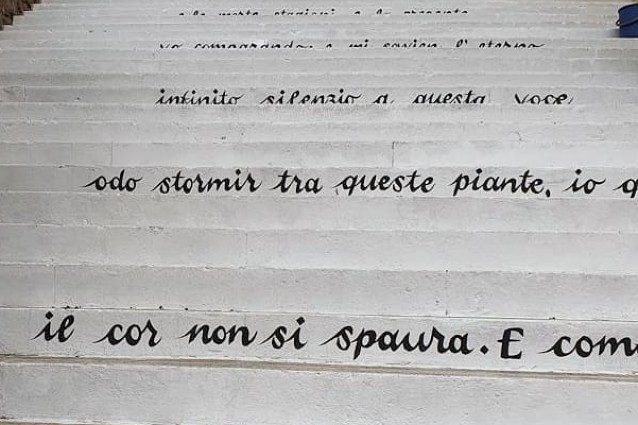 e le morte stagioni e la presente
vo comparando: e mi sovien l'eterno
infinito silenzio a questa voce
odo stormir tra queste piante, io q
il cor non si spaura. E com